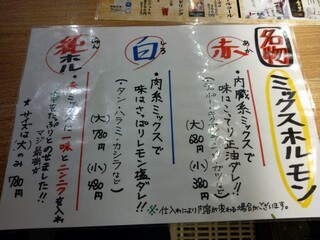 名物
ミックスホルモン
赤
あか
・内臓系ミックスで
味はこってり正油ダレ!!
(大) 680円 (小) 430円
白
しろ
・肉系ミックスで
味はさっぱりレモン塩ダレ!!
(・タン・ハラミ・カシラなど)
(大) 780円 (小) 480円
ホル
ミックスに一味とニンニクを入れ
たっぷりとのせました!!
マジ最強☆
★サイズは(大)のみ 780円
※・仕入れにより内容が変わる場合がございます。